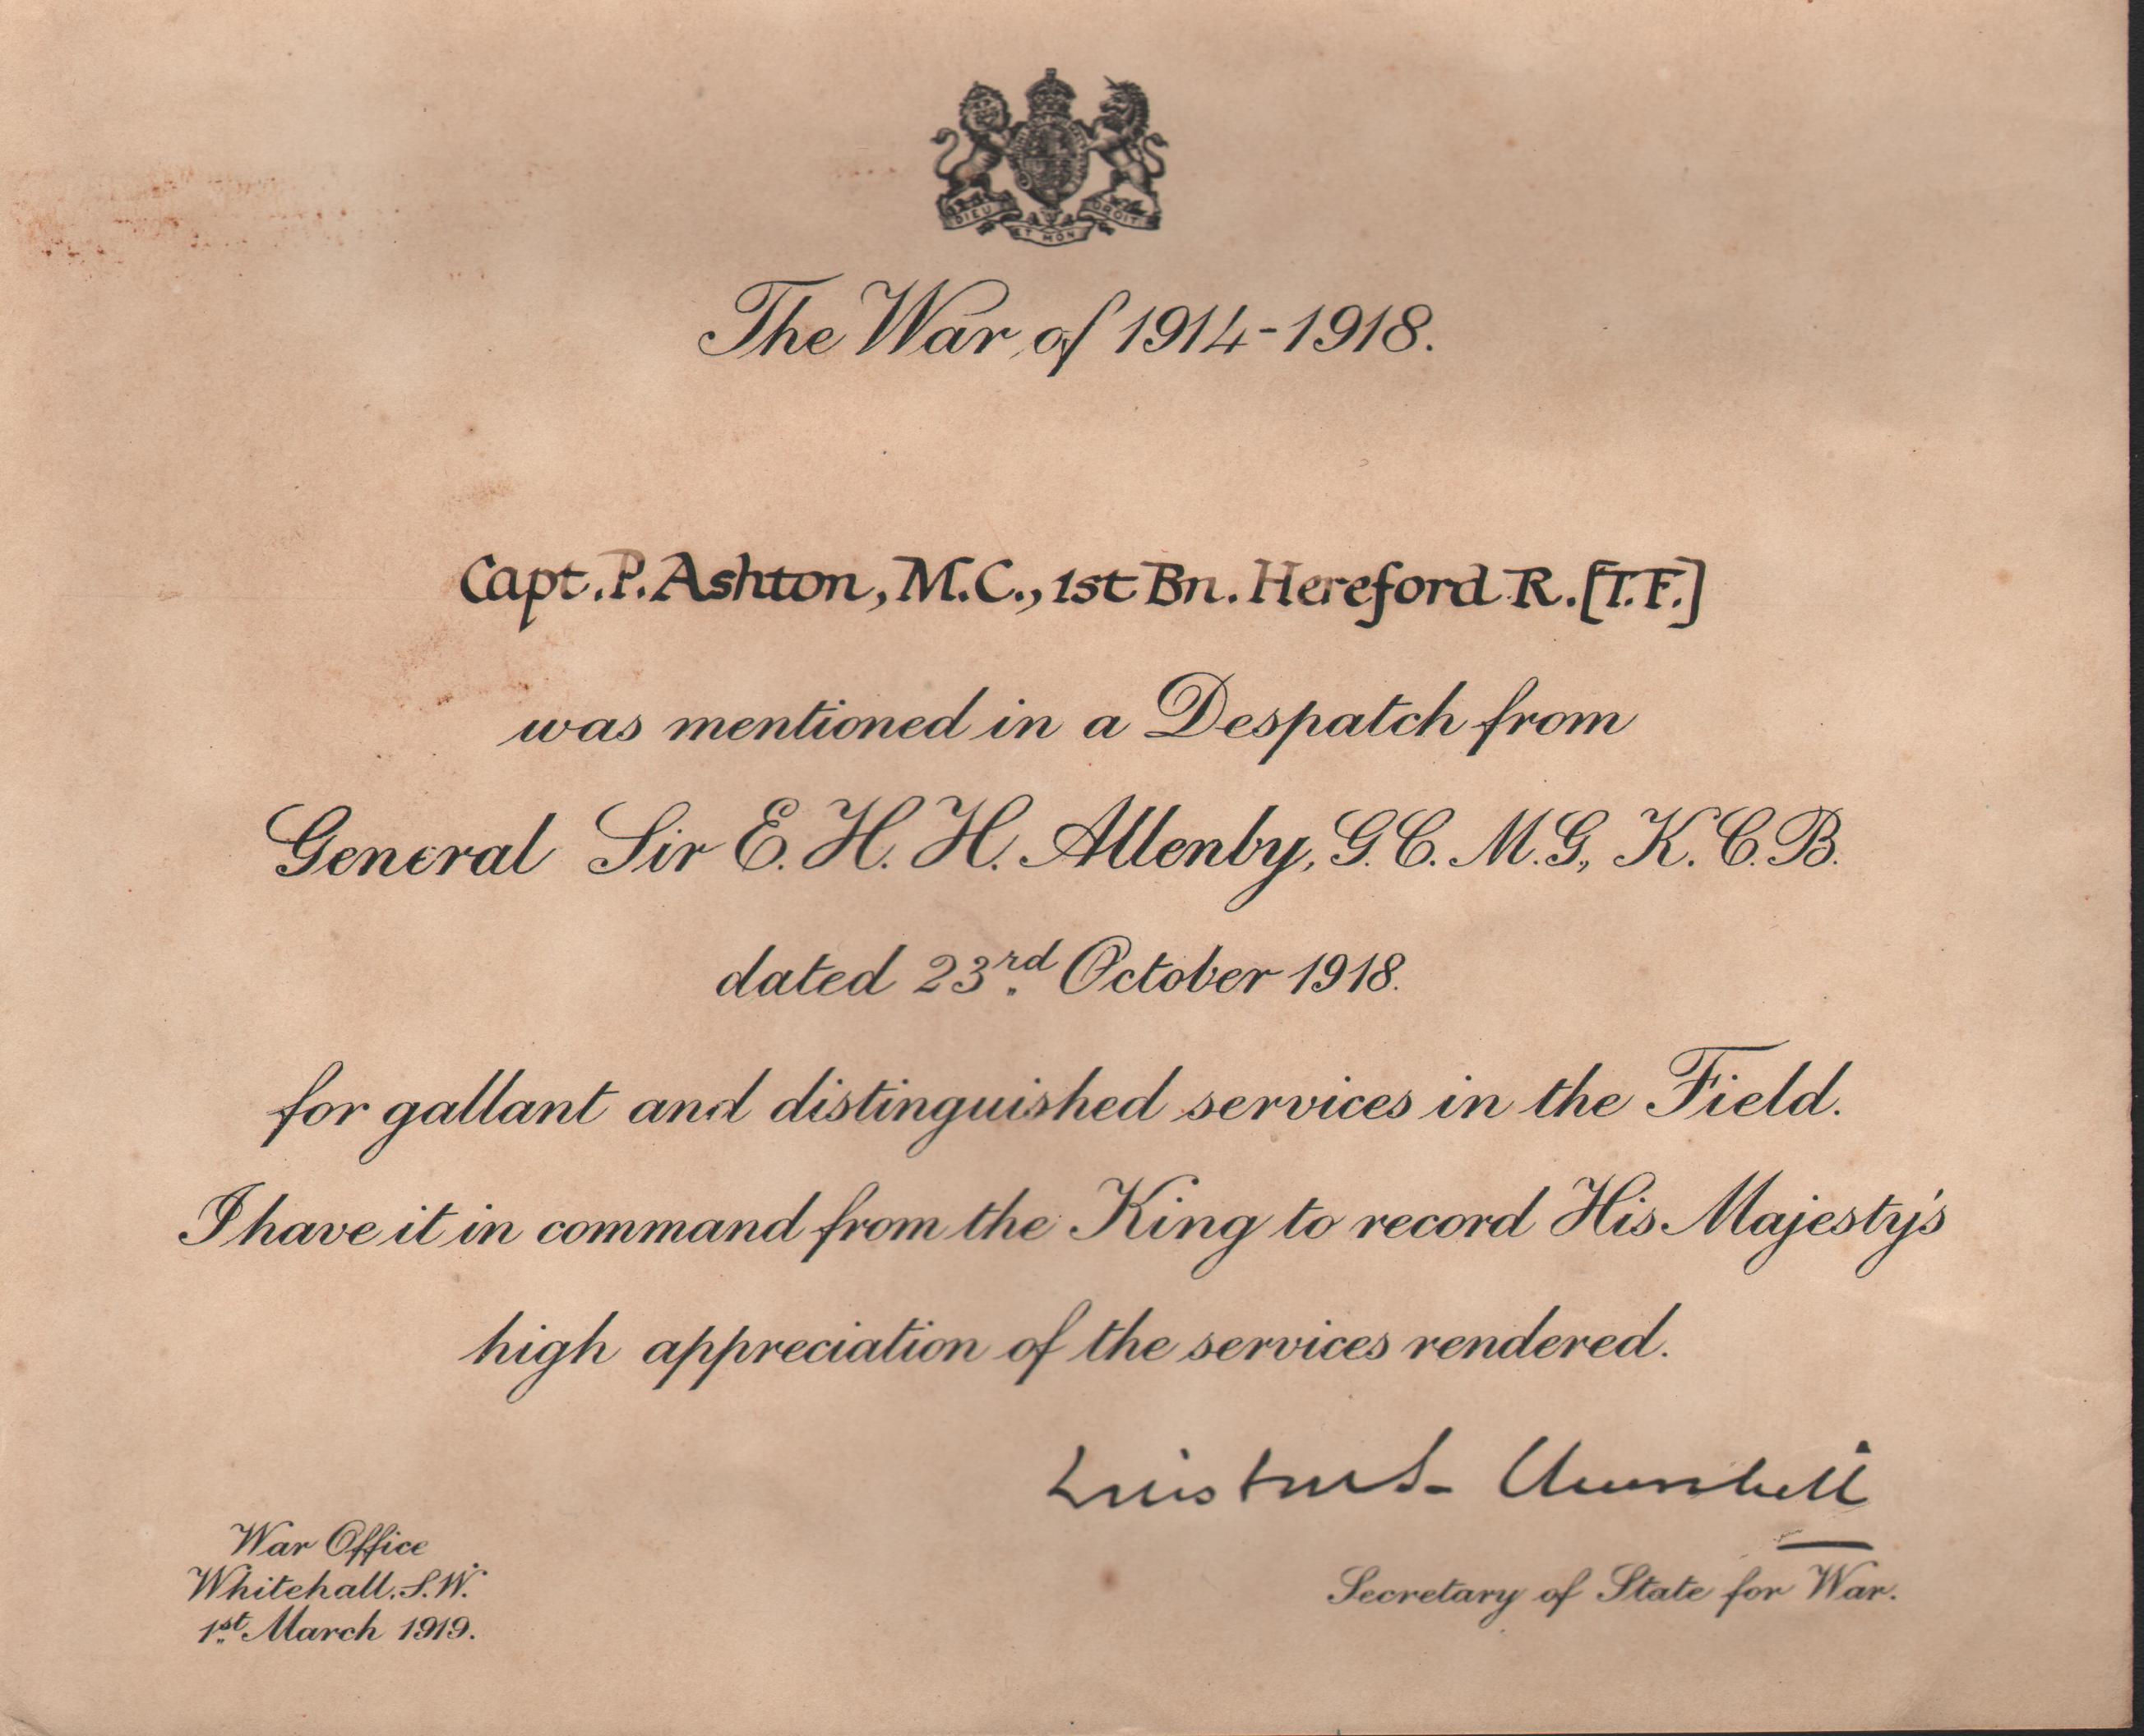 DIEU ET MON DROIT
The War of 1914-1918.
Capt. P. Ashton, M.C., 1st Bn. Hereford R. [T.F.]
was mentioned in a Despatch from
General Sir E. H. H. Allenby, G.C.M.G., K.C.B.
dated 23rd October 1918.
for gallant and distinguished services in the Field.
I have it in command from the King to record His Majesty's
high appreciation of the services rendered.
Winston S. Churchill
War Office
Whitehall. S.W.
1st March 1919.
Secretary of State for War.